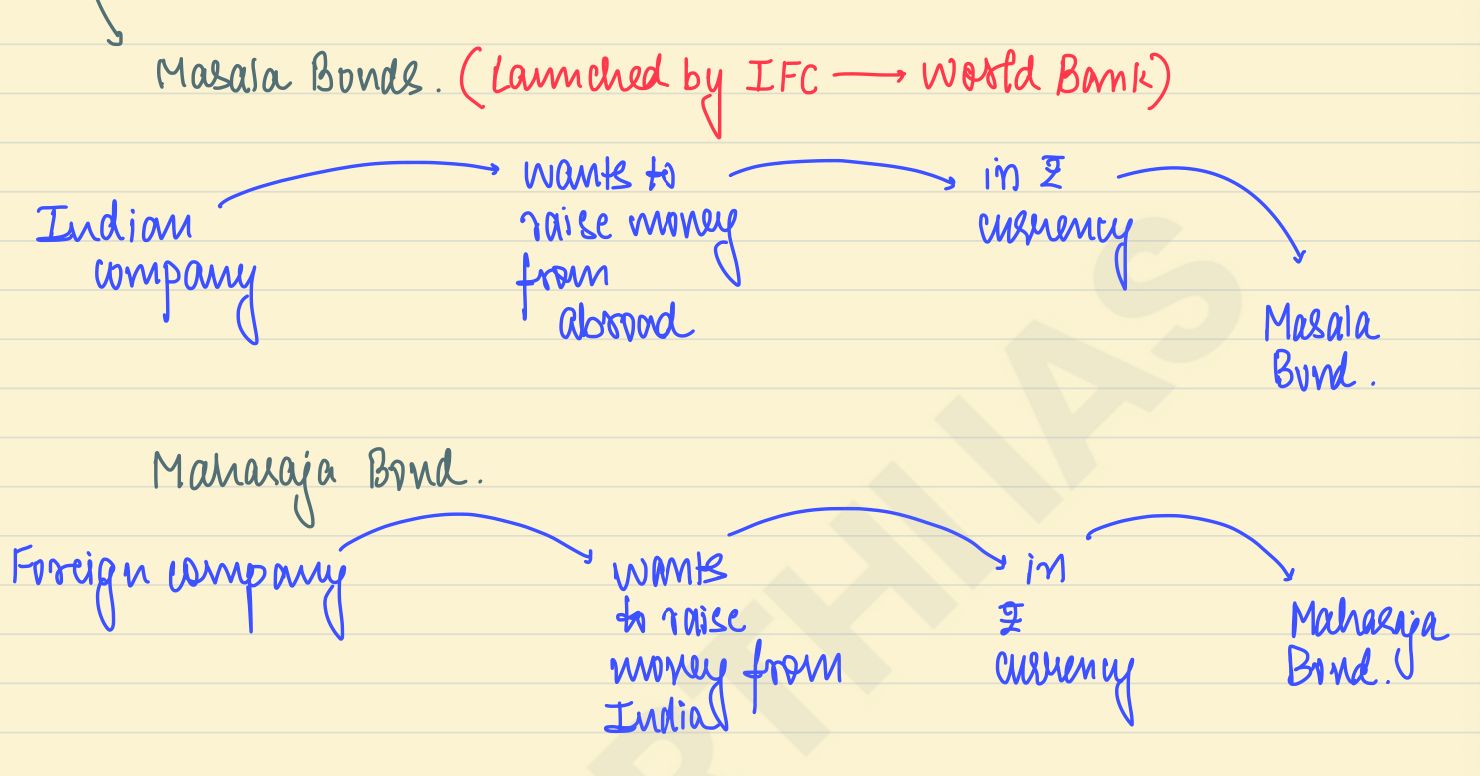 Masala Bonds. (Launched by IFC → World Bank)
Indian
company
wants to
raise money
from
abroad
in ₹
currency
Masala
Bond.
Maharaja Bond.
Foreign company
wants
to raise
money from
India
in
₹
currency
Maharaja
Bond.
RTHI IAS